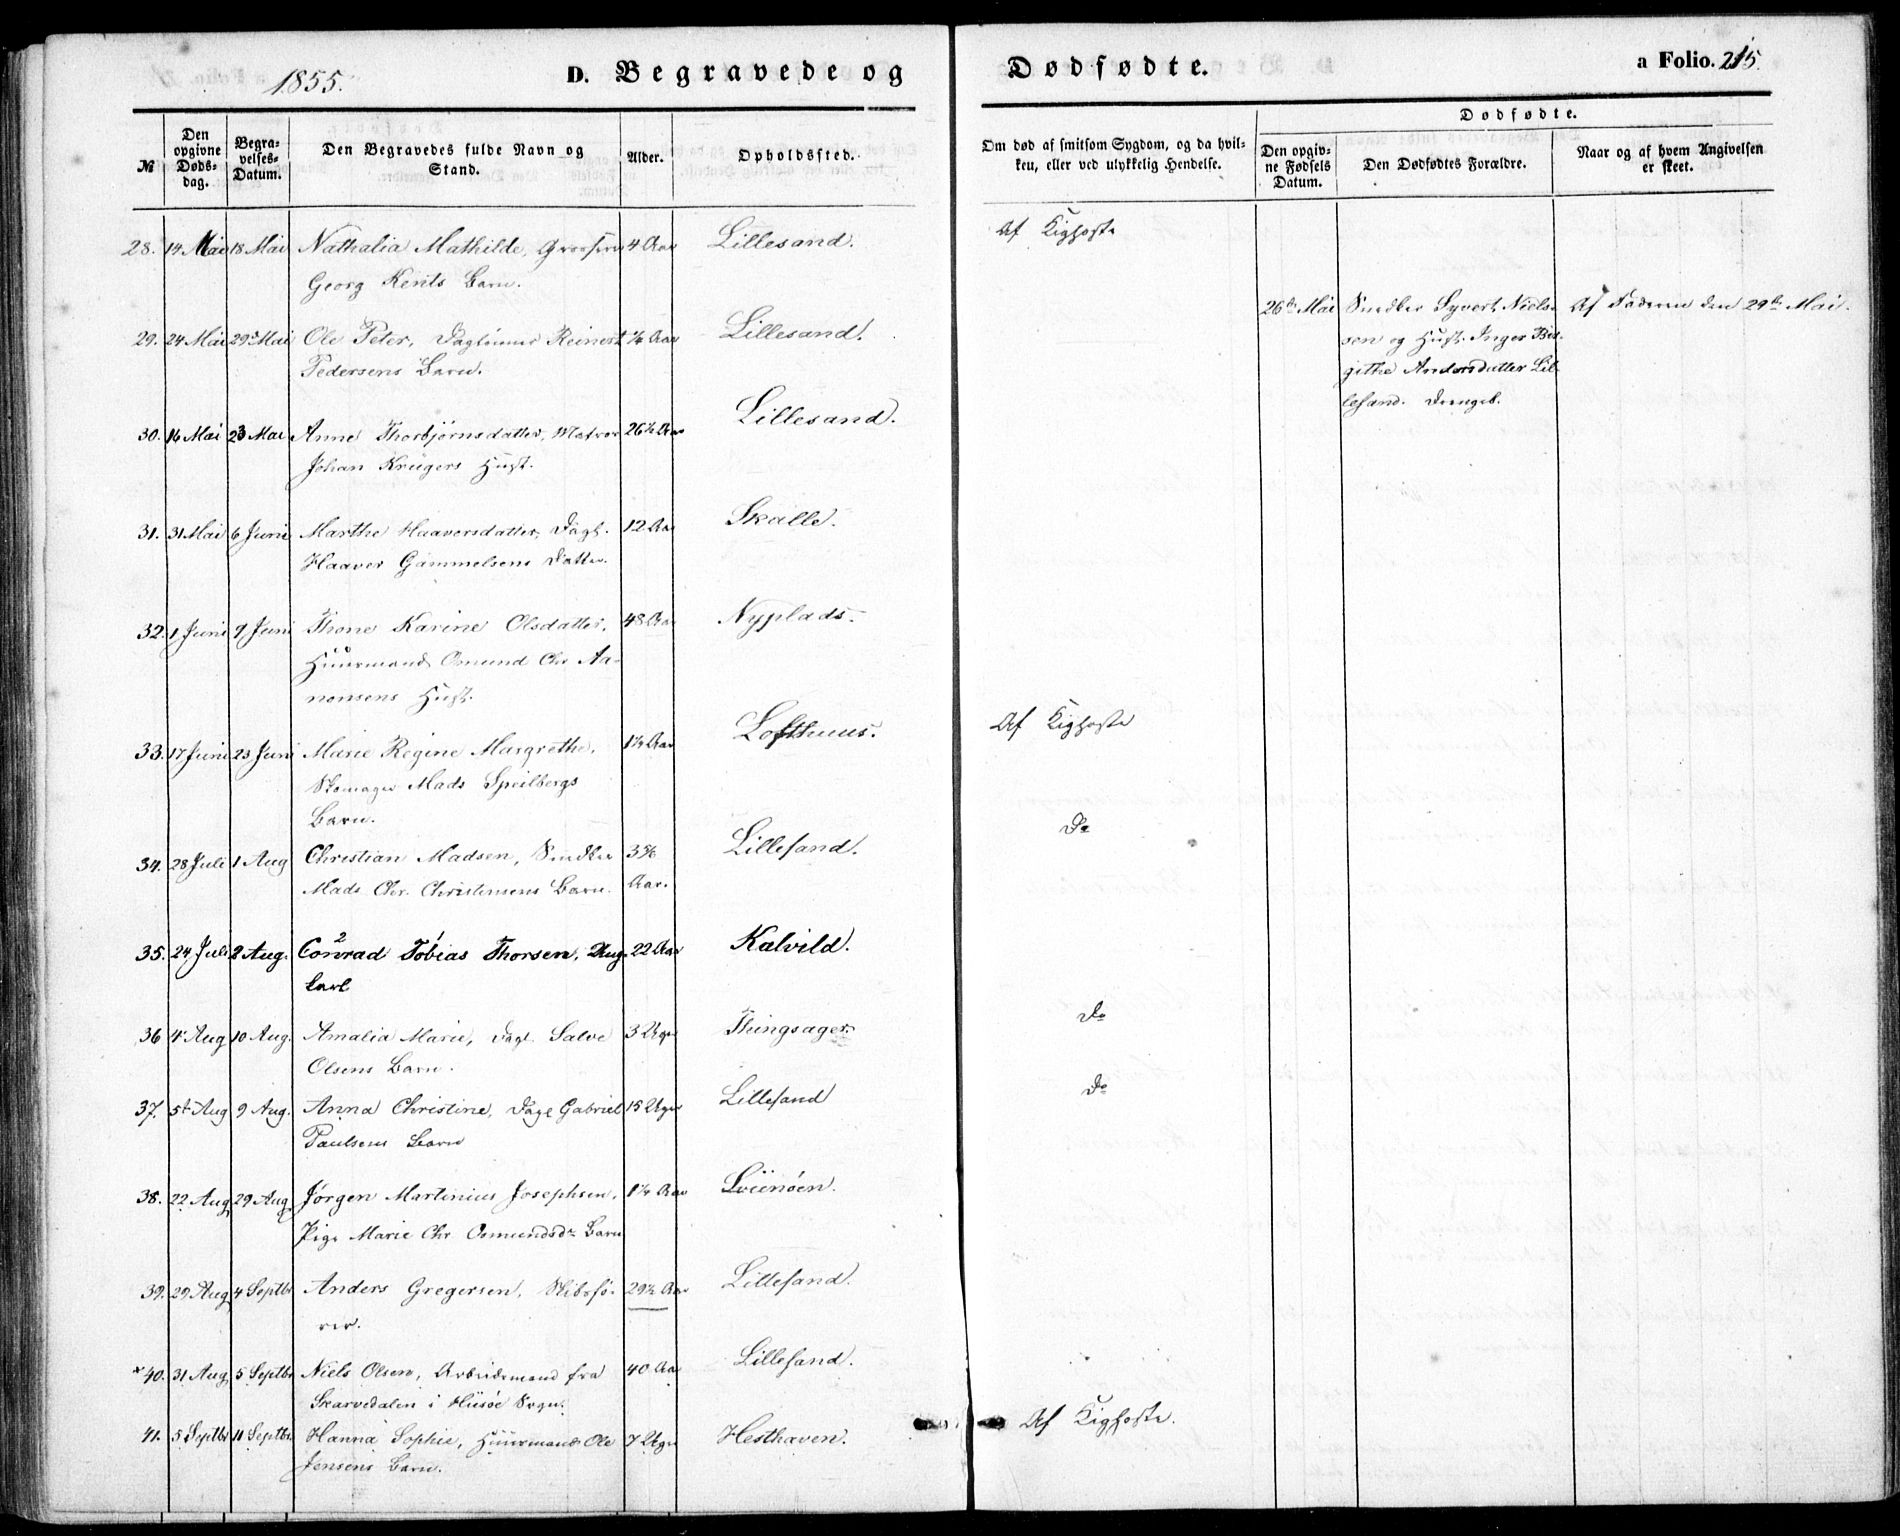 1855.
D. Begravede og
Dødfødte.
a Folio. 215.
№
Den opgivne Døds-dag.
Begra-velses-Datum.
Den Begravedes fulde Navn og Stand.
Alder.
Opholdssted.
Om død af smitsom Sygdom, og da hvil-
ken, eller ved ulykkelig Hendelse.
Dødfødte.
Den opgiv-ne Fødsels Datum.
Den Dødfødtes Forældre.
Naar og af hvem Angivelsen er skeet.
28. 14 Mai 18 Mai Nathalia Mathilde, 4 Aar Lillesand. Af Kighoste
Georg Kents Barn.
26de Mai Snedker Syvert Niels- Af Faderen den 29de Mai.
29. 24 Mai 29 Mai Ole Peter, Daglønner Reinert Aar Lillesand.
sen og Hust. Inger Bir-
Pedersens Barn.
githe Andersdatter Lil-
lesand. Drengeb.
30. 16 Mai 23 Mai Anne Thorbjørnsdatter, Matros 26½ Aar Lillesand.
Johan Krügers Hust.
31. 31 Mai 6 Juni Marthe Haaversdatter, Dagl. 12 Aar Skalle.
Haaver Gammelsens Datter.
32. 1 Juni 9 Juni Thone Karine Olsdatter, 48 Aar Nyplads.
Huurmand Omund Chr Aa-
nonsens Hust.
33. 17 Juni 23 Juni Marie Regine Margrethe, Aar Lofthuus. Af Kighoste
Skomager Mads Speilbergs
Barn.
34. 28 Juli 1 Aug Christian Madsen, Snedker Lillesand. Do
Mads Chr. Christensens Barn. Aar.
35. 24 Juli 2 Aug. Conrad Tobias Thorsen, Ung- 22 Aar Kalvild.
karl
36 4 Aug 10 Aug. Amalia Marie, Dagl. Salve 3 Uger Thingsager. Do
Olsens Barn.
37. 5t Aug 9 Aug. Anna Christine, Dagl Gabriel 15 Uger Lillesand Do
Paulsens Barn
38. 22 Aug 29 Aug Jørgen Martinius Josephsen, 1¼ Aar
Pige Marie Chr Osmundsdr Barn
39. 29 Aug 4 Septbr Anders Gregersen, Skibsfø- 29½ Aar Lillesand.
rer.
×40. 31 Aug 5 Septbr Niels Olsen, Arbeidsmand fra 40 Aar Lillesand.
Skarvedalen i Hisøe Sogn.
41. 5 Septbr 11 Septbr. Hanna Sophie, Huurmand Ole 7 Uger Hesthaven. Af Kighoste.
Jensens Barn.